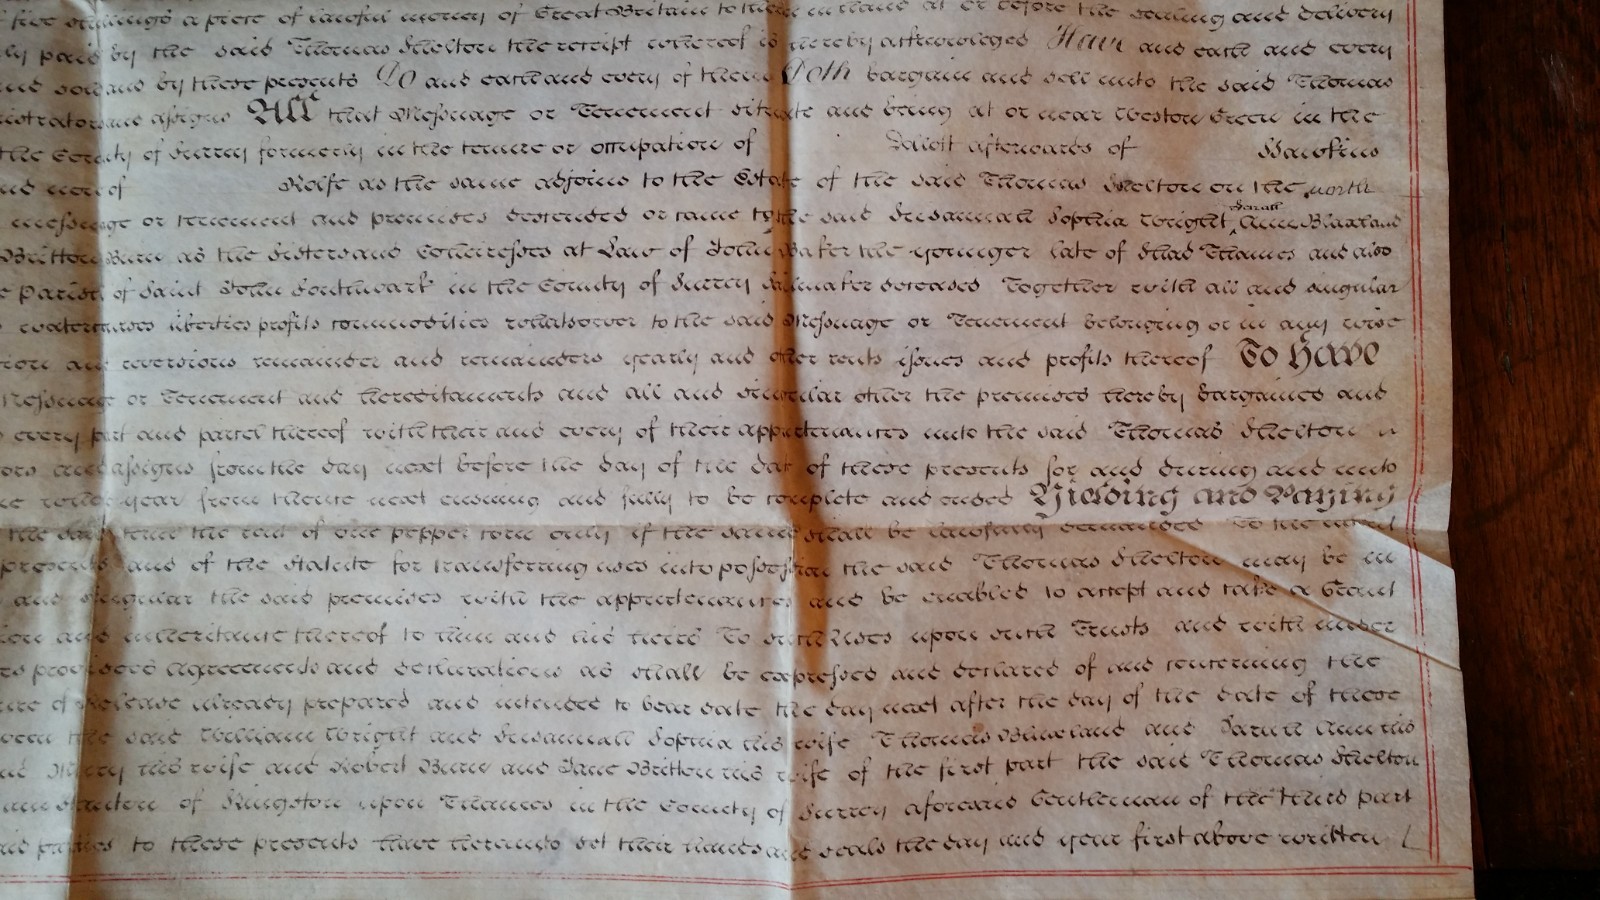 five shillings a piece of lawful money of Great Britain to them in hand at or before the sealing and delivery
ly paid by the said Thomas Shelton the receipt whereof is hereby acknowledged Have and each and every
and sold and by these presents Do and each and every of them Doth bargain and sell unto the said Thomas
istrators and assigns All that Messuage or Tenement situate and being at or near Weston Green in the
the County of Surrey formerly in the tenure or occupation of afterwards of Hawkins
and now of Rolfe as the same adjoins to the Estate of the said Thomas Shelton on the north
messuage or tenement and premises descended or came to the said Susannah Sophia Wright Sarah Ann Blaxland
Britton Burn as the Sisters and Coheiresses at Law of John Baker the younger late of Shad Thames and also
e Parish of Saint John Southwark in the County of Surrey Sailmaker deceased Together with all and singular
watercourses liberties profits commodities whatsoever to the said Messuage or Tenement belonging or in any wise
rion and reversions remainder and remainders yearly and other rents issues and profits thereof To Have
Messuage or Tenement and hereditaments and all and singular other the premises hereby bargained and
every part and parcel thereof with their and every of their appurtenances unto the said Thomas Shelton
ors and assigns from the day next before the day of the date of these presents for and during and unto
ne whole year from thence next ensuing and fully to be complete and ended Yielding and Paying
the said term the rent of one pepper corn only if the same shall be lawfully demanded To the intent
presents and of the statute for transferring uses into possession the said Thomas Shelton may be in
and singular the said premises with the appurtenances and be enabled to accept and take a Grant
ion and inheritance thereof to him and his heirs To such Uses upon such Trusts and with under
ts provisoes Agreements and declarations as shall be expressed and declared of and concerning the
ure of Release already prepared and intended to bear date the day next after the day of the date of these
ween the said William Wright and Susannah Sophia his wife Thomas Blaxland and Sarah Ann his
nd Mary his wife and Robert Burn and Jane Britton his wife of the first part the said Thomas Shelton
of Kingston upon Thames in the County of Surrey aforesaid Gentleman of the third part
aid parties to these presents have hereunto set their hands and seals the day and year first above written